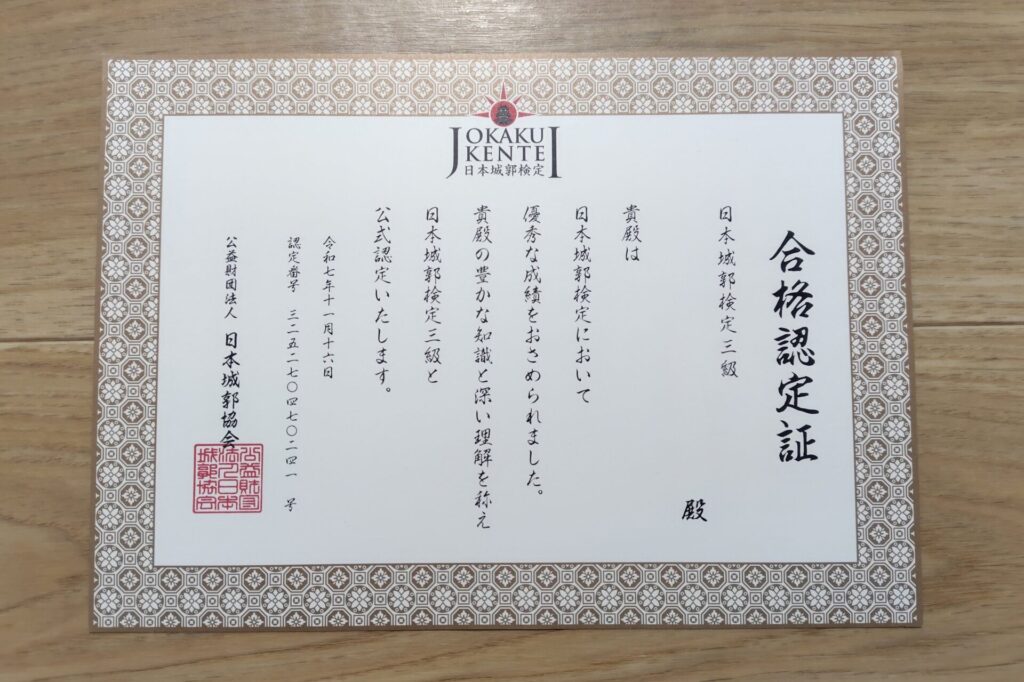 JOKAKU
KENTEI
日本城郭検定
合格認定証
日本城郭検定三級
殿
貴殿は
日本城郭検定において
優秀な成績をおさめられました。
貴殿の豊かな知識と深い理解を称え
日本城郭検定三級と
公式認定いたします。
令和七年十一月十六日
認定番号 三二五二七〇四七〇二四一 号
公益財団法人 日本城郭協会
公益財団
法人日本
城郭協会